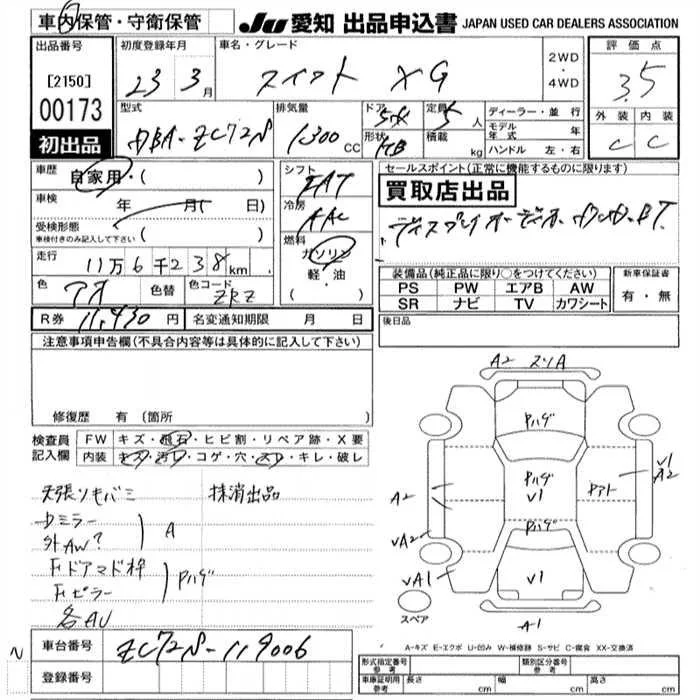 車内保管・守衛保管
JU 愛知 出品申込書 JAPAN USED CAR DEALERS ASSOCIATION
出品番号
[2150]
00173
初出品
初度登録年月
23年3月
車名・グレード
スイフト XG
2WD
・
4WD
評価点
3.5
外装 内装
C C
型式
DBA-ZC72S
排気量
1300 CC
ドア
形状
定員
5人
積載
kg
ディーラー・並行
モデル年式 年
ハンドル 左・右
車歴
自家用・( )
車検
年 月( 日)
受検形態
車検付きのみ記入して下さい ( )
走行
11万6千238km
色
アオ
色替
色コード
ZRZ
シフト
FAT
冷房
AAC
燃料
ガソリン
軽・油
( )
セールスポイント(正常に機能するものに限ります)
買取店出品
装備品(純正品に限り○をつけてください)
PS PW エアB AW
SR ナビ TV カワシート
新車保証書
有・無
R券 11,430円
名変通知期限 月 日
後日品
注意事項申告欄(不具合内容等は具体的に記入して下さい)
修復歴 有(箇所
検査員
記入欄
FW キズ・飛石・ヒビ割・リペア跡・X要
内装 キズ・汚レ・コゲ・穴・スレ・キレ・破レ
天張リモバミ 抹消出品
Dミラー
外AW?
A
Fドアマド枠
Fピラー
Pハゲ
各AU
A2 スリA
Pハゲ
Pハゲ
V1
Pハゲ
V1
A2
VA2
VA1
V1
A2
A1
スペア
A-キズ E-エクボ U-凹み W-補修跡 S-サビ C-腐食 XX-交換済
車台番号
ZC72S-119006
N
登録番号
形式指定番号
参考
類別区分番号
参考
車庫証明用
参考
長さ cm
幅 cm
高さ cm